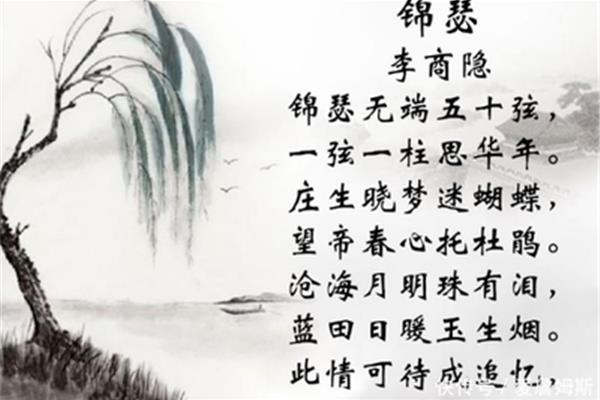 锦瑟
李商隐
锦瑟无端五十弦，
一弦一柱思华年。
庄生晓梦迷蝴蝶，
望帝春心托杜鹃。
沧海月明珠有泪，
蓝田日暖玉生烟。
此情可待成追忆，
快传号／爱詹姆斯